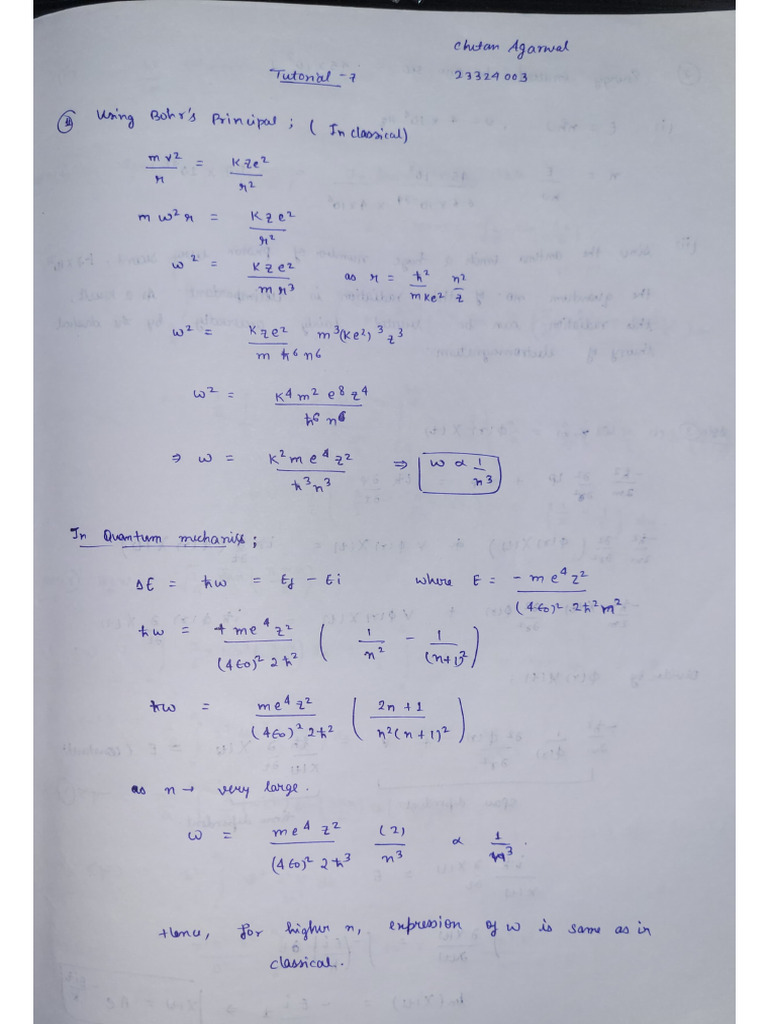 Chetan Agarwal
Tutorial - 7
23324003
① Using Bohr's Principal ; ( In classical)
mv²/r = Kze²/r²
mω²r = Kze²/r²
ω² = Kze²/mr³ as r = ħ²/mke² n²/z
ω² = Kze²/mħ⁶n⁶ m³(ke²)³z³
ω² = K⁴m²e⁸z⁴/ħ⁶n⁶
⇒ ω = K²me⁴z²/ħ³n³ ⇒ ω ∝ 1/n³
In Quantum mechanics ;
ΔE = ħω = Ef - Ei where E = -me⁴z²/(4ε₀)²2ħ²m²
ħω = + me⁴z²/(4ε₀)²2ħ² ( 1/n² - 1/(n+1)² )
ħω = me⁴z²/(4ε₀)²2ħ² ( 2n+1/n²(n+1)² )
as n → very large.
ω = me⁴z²/(4ε₀)²2ħ³ (2)/n³ ∝ 1/n³.
Hence, for higher n, expression of ω is same as in
classical.